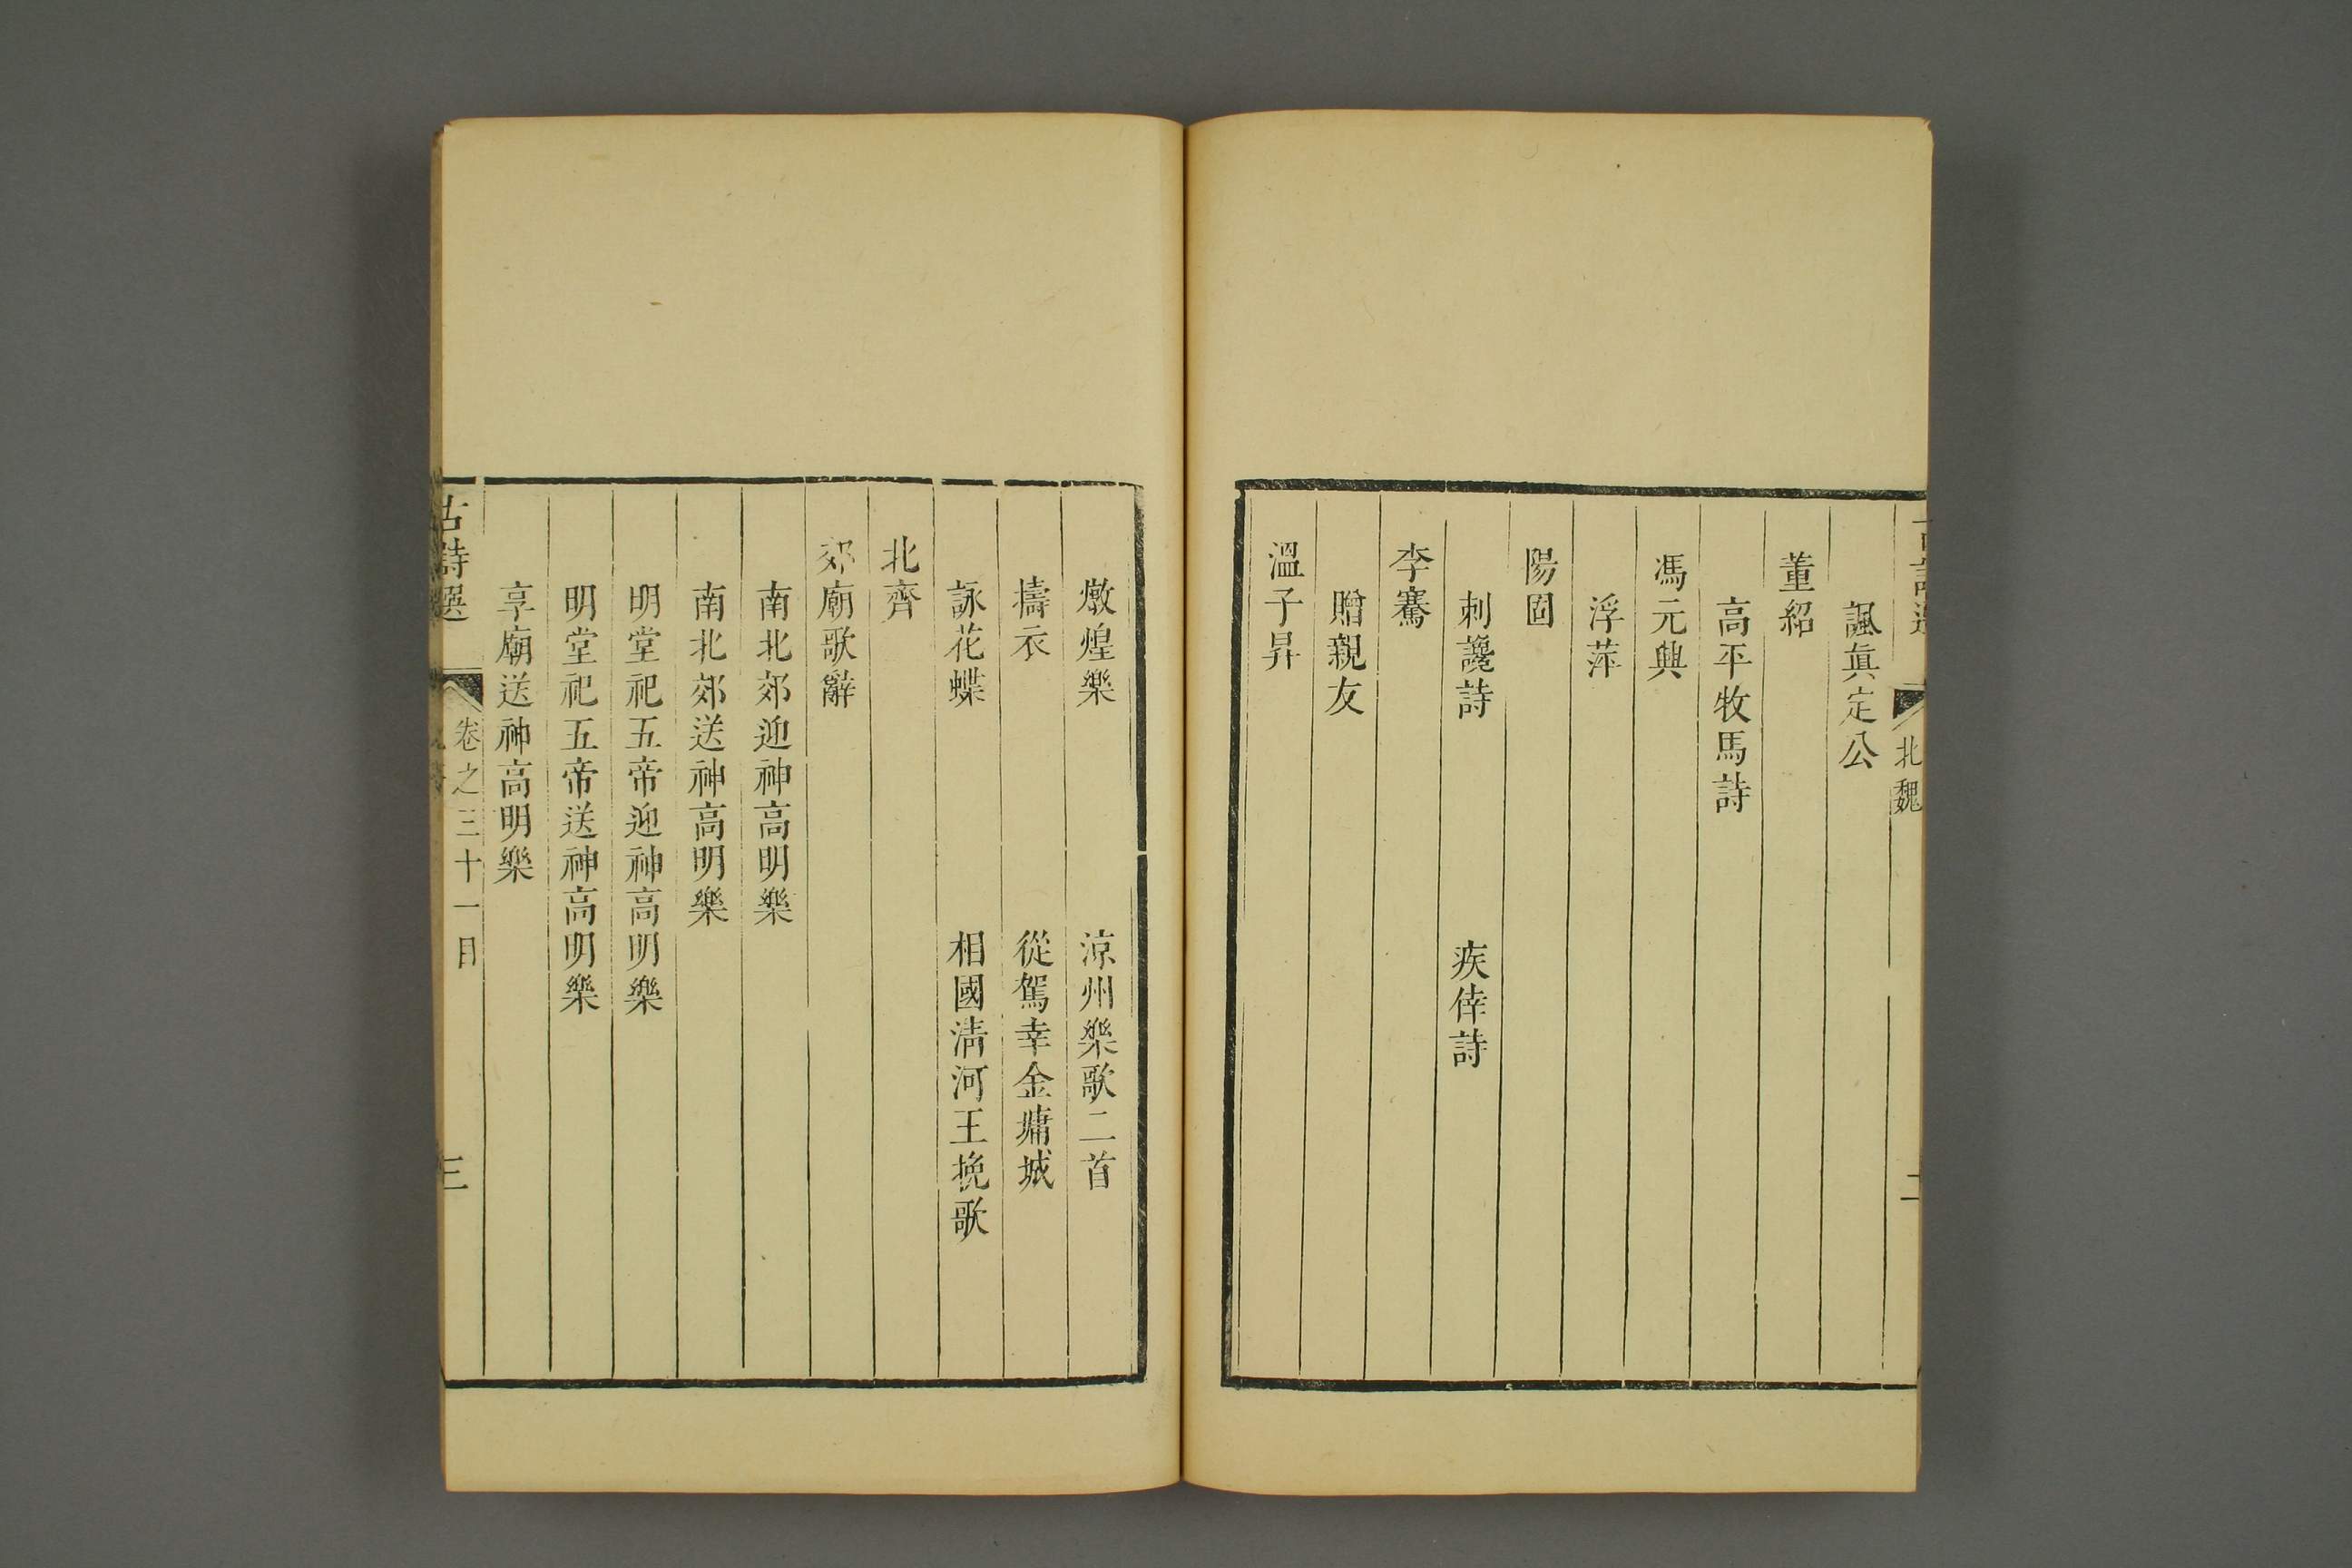 北魏
諷真定公
董紹
高平牧馬詩
馮元興
浮萍
陽固
刺讒詩　疾倖詩
李騫
贈親友
溫子昇
燉煌樂　涼州樂歌二首
擣衣　從駕幸金墉城
詠花蝶　相國清河王挽歌
北齊
郊廟歌辭
南北郊迎神高明樂
南北郊送神高明樂
明堂祀五帝迎神高明樂
明堂祀五帝送神高明樂
享廟送神高明樂
古詩選　卷之三十一目　三